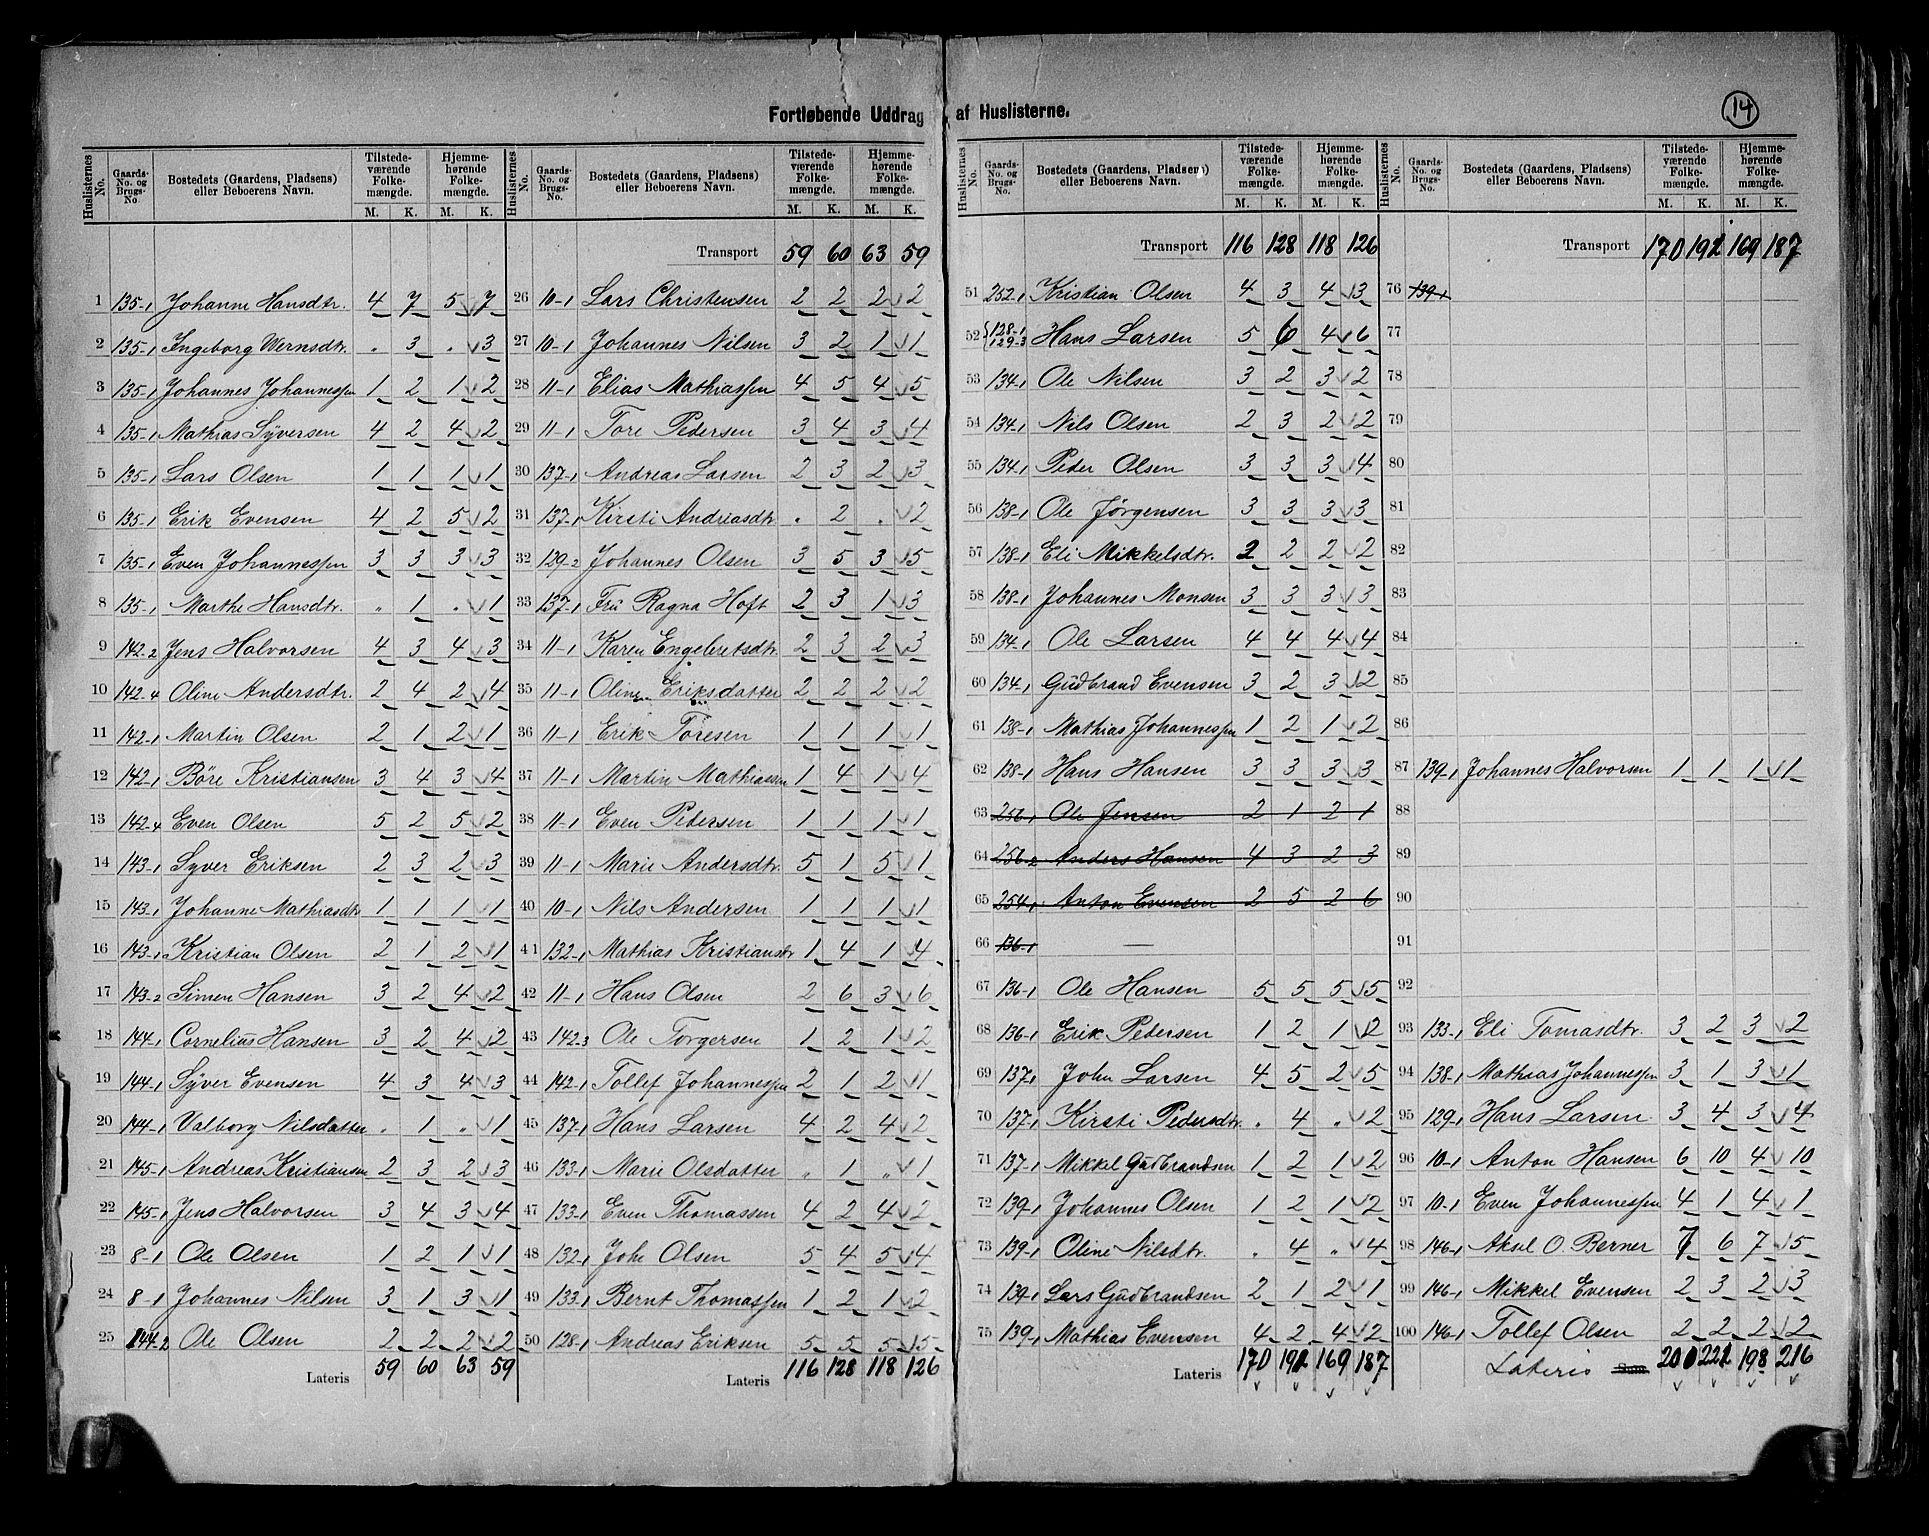 Fortløbende Uddrag af Huslisterne.
14
Huslisternes No. | Gaards-No. og Brugs-No. | Bostedets (Gaardens, Pladsens) eller Beboerens Navn. | Tilstedeværende Folkemængde. M. K. | Hjemmehørende Folkemængde. M. K.
1 135-1 Johanne Hansdtr. 4 7 5 7
2 135-1 Ingeborg Wernsdtr. . 3 . 3
3 135-1 Johannes Johannessen 1 2 1 2
4 135-1 Mathias Syversen 4 2 4 2
5 135-1 Lars Olsen 1 1 1 1
6 135-1 Erik Evensen 4 2 5 2
7 135-1 Even Johannessen 3 3 3 3
8 135-1 Marthe Hansdtr. " 1 . 1
9 142-2 Jens Halvorsen 4 3 4 3
10 142-4 Oline Andersdtr. 2 4 2 4
11 142-1 Martin Olsen 2 1 2 1
12 142-1 Böre Kristiansen 3 4 3 4
13 142-4 Even Olsen 5 2 5 2
14 143-1 Syver Eriksen 2 3 2 3
15 143-1 Johanne Mathiasdtr 1 1 1 1
16 143-1 Kristian Olsen 2 1 2 1
17 143-2 Simen Hansen 3 2 4 2
18 144-1 Cornelius Hansen 3 2 4 2
19 144-1 Syver Evensen 4 3 4 3
20 144-1 Valborg Nilsdatter . 1 " 1
21 145-1 Andreas Kristiansen 2 3 2 3
22 145-1 Jens Halvorsen 3 4 3 4
23 8-1 Ole Olsen 1 2 1 1
24 8-1 Johannes Nilsen 3 1 3 1
25 144-2 Ole Olsen 2 2 2 2
Lateris 59 60 63 59
Huslisternes No. | Gaards-No. og Brugs-No. | Bostedets (Gaardens, Pladsens) eller Beboerens Navn. | Tilstedeværende Folkemængde. M. K. | Hjemmehørende Folkemængde. M. K.
Transport 59 60 63 59
26 10-1 Lars Christensen 2 2 2 2
27 10-1 Johannes Nilsen 3 2 1 1
28 11-1 Elias Mathiassen 4 5 4 5
29 11-1 Tore Pedersen 3 4 3 4
30 137-1 Andreas Larsen 2 3 2 3
31 137-1 Kirsti Andreasdtr . 2 . 2
32 129-2 Johannes Olsen 3 5 3 5
33 137-1 Fru Ragna Hoft 2 3 1 3
34 11-1 Karen Engebretsdtr. 2 3 2 3
35 11-1 Oline Eriksdatter 2 2 2 2
36 11-1 Erik Toresen 1 1 1 1
37 11-1 Martin Mathiassen 1 4 1 4
38 11-1 Even Pedersen 1 1 1 1
39 11-1 Marie Andersdtr. 5 1 5 1
40 10-1 Nils Andersen 1 1 1 1
41 132-1 Mathias Kristiansdtr 1 4 1 4
42 11-1 Hans Olsen 2 6 3 6
43 142-3 Ole Torgersen 1 2 1 2
44 142-1 Tollef Johannessen 2 1 2 1
45 137-1 Hans Larsen 4 2 4 2
46 133-1 Marie Olsdatter " 1 " 1
47 133-1 Even Thomassen 4 2 4 2
48 132-1 Joh: Olsen 5 4 5 4
49 133-1 Bernt Thomassen 1 2 1 2
50 128-1 Andreas Eriksen 5 5 5 5
Lateris 116 128 118 126
Huslisternes No. | Gaards-No. og Brugs-No. | Bostedets (Gaardens, Pladsens) eller Beboerens Navn. | Tilstedeværende Folkemængde. M. K. | Hjemmehørende Folkemængde. M. K.
Transport 116 128 118 126
51 252-1 Kristian Olsen 4 3 4 3
52 128-1 129-3 Hans Larsen 5 6 4 6
53 134-1 Ole Nilsen 3 2 3 2
54 134-1 Nils Olsen 2 3 2 2
55 134-1 Peder Olsen 3 3 3 4
56 138-1 Ole Jørgensen 3 3 3 3
57 138-1 Eli Mikkelsdtr. 2 2 2 2
58 138-1 Johannes Monsen 3 3 3 3
59 134-1 Ole Larsen 4 4 4 4
60 134-1 Gudbrand Evensen 3 2 3 2
61 138-1 Mathias Johannessen 1 2 1 2
62 138-1 Hans Hansen 3 3 3 3
63 256-1 Ole Jensen 2 1 2 1
64 256-2 Anders Hansen 4 3 2 3
65 254-1 Anton Evensen 2 5 2 6
66 136-1 —
67 136-1 Ole Hansen 5 5 5 5
68 136-1 Erik Pedersen 1 2 1 2
69 137-1 John Larsen 4 5 2 5
70 137-1 Kirsti Pedersdtr. . 4 " 2
71 137-1 Mikkel Gudbrandsen 1 2 1 2
72 139-1 Johannes Olsen 1 2 1 2
73 139-1 Oline Nilsdtr. . 4 " 4
74 139-1 Lars Gudbrandsen 2 1 2 1
75 139-1 Mathias Evensen 4 2 4 2
Lateris 170 191 169 187
Huslisternes No. | Gaards-No. og Brugs-No. | Bostedets (Gaardens, Pladsens) eller Beboerens Navn. | Tilstedeværende Folkemængde. M. K. | Hjemmehørende Folkemængde. M. K.
Transport 170 191 169 187
76 139-1
77
78
79
80
81
82
83
84
85
86
87 139-1 Johannes Halvorsen 1 1 1 1
88
89
90
91
92
93 133-1 Eli Tomasdtr. 3 2 3 2
94 138-1 Mathias Johannessen 3 1 3 1
95 129-1 Hans Larsen 3 4 3 4
96 10-1 Anton Hansen 6 10 4 10
97 10-1 Even Johannessen 4 1 4 1
98 146-1 Aksel O. Berner 7 6 7 5
99 146-1 Mikkel Evensen 2 3 2 3
100 146-1 Tollef Olsen 2 2 2 2
Lateris Sum 200 221 198 216